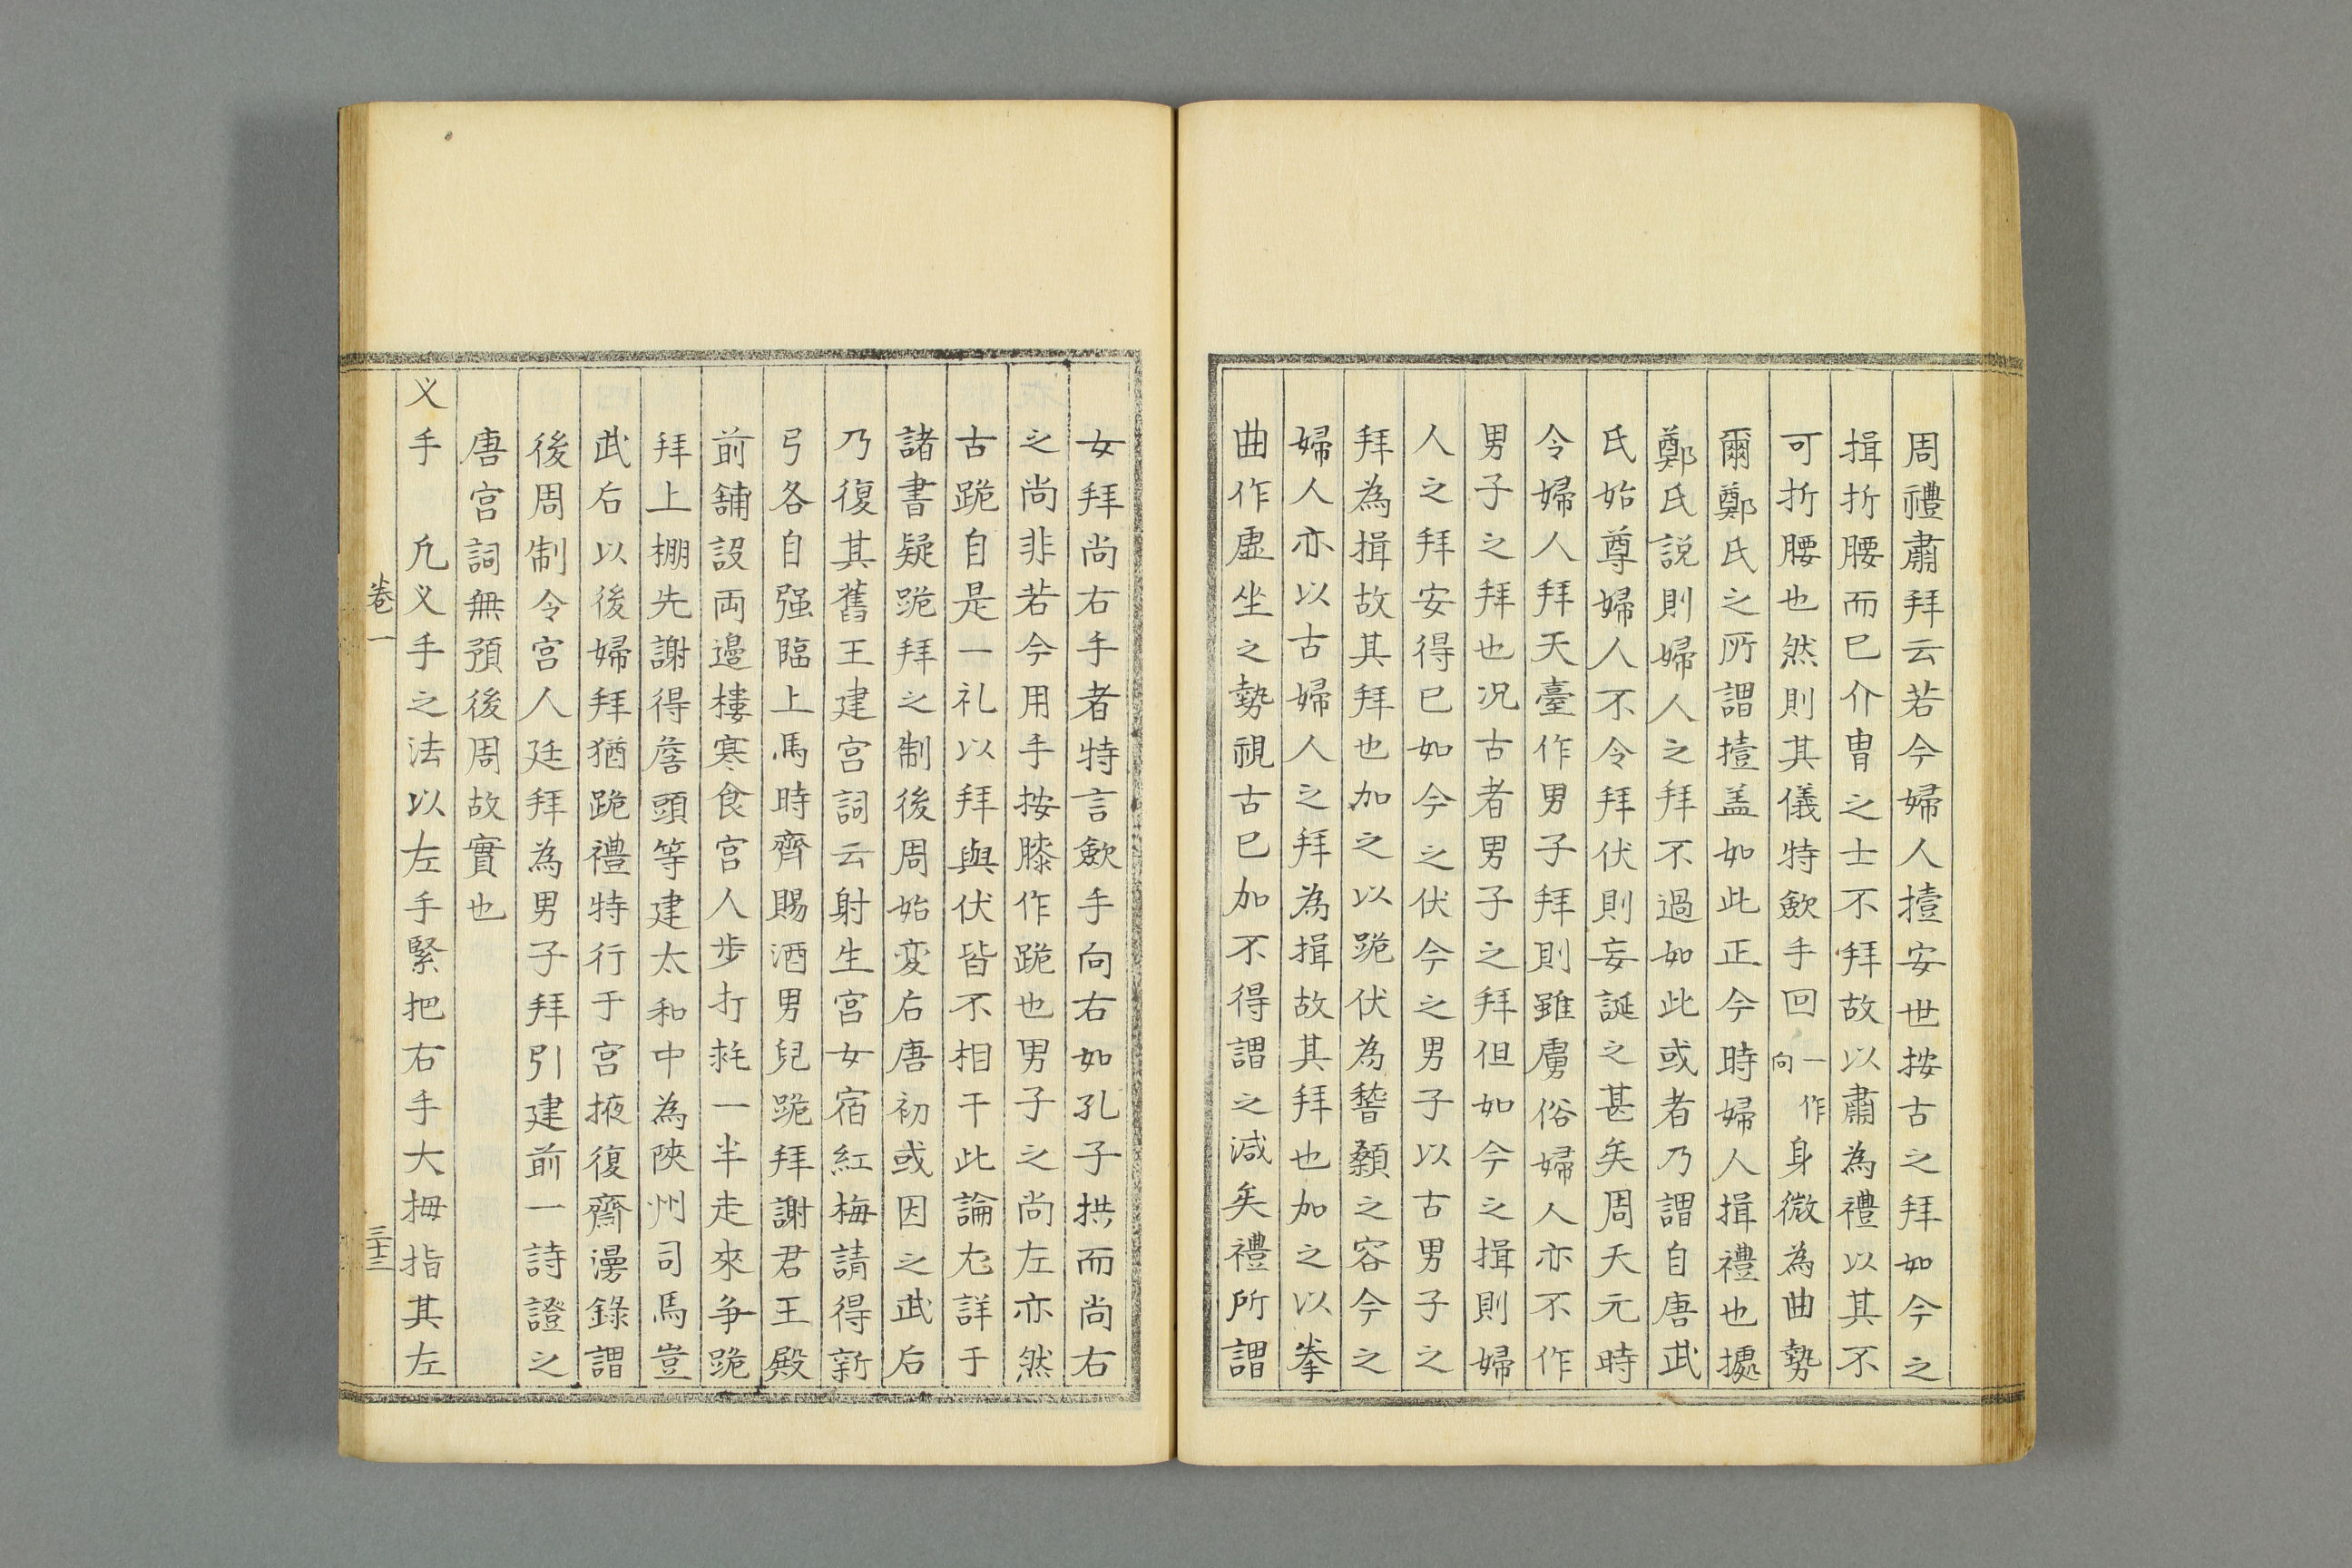 周禮肅拜云若今婦人撎安世按古之拜如今之
揖折腰而已介胄之士不拜故以肅為禮以其不
可折腰也然則其儀特斂手回一作向身微為曲勢
爾鄭氏之所謂撎盖如此正今時婦人揖禮也據
鄭氏説則婦人之拜不過如此或者乃謂自唐武
氏始尊婦人不令拜伏則妄誕之甚矣周天元時
令婦人拜天臺作男子拜則雖虜俗婦人亦不作
男子之拜也况古者男子之拜但如今之揖則婦
人之拜安得已如今之伏今之男子以古男子之
拜為揖故其拜也加之以跪伏為稽顙之容今之
婦人亦以古婦人之拜為揖故其拜也加之以拳
曲作虚坐之勢視古已加不得謂之减矣禮所謂
女拜尚右手者特言斂手向右如孔子拱而尚右
之尚非若今用手按膝作跪也男子之尚左亦然
古跪自是一礼以拜與伏皆不相干此論尤詳于
諸書疑跪拜之制後周始変后唐初或因之武后
乃復其舊王建宫詞云射生宫女宿紅梅請得新
弓各自强臨上馬時齊賜酒男兒跪拜謝君王殿
前舖設両邉樓寒食宫人步打毬一半走來争跪
拜上棚先謝得詹頭等建太和中為陜州司馬豈
武后以後婦拜猶跪禮特行于宫掖復齋漫錄謂
後周制令宫人廷拜為男子拜引建前一詩證之
唐宫詞無預後周故實也
义手　凡义手之法以左手緊把右手大拇指其左
卷一
三十三